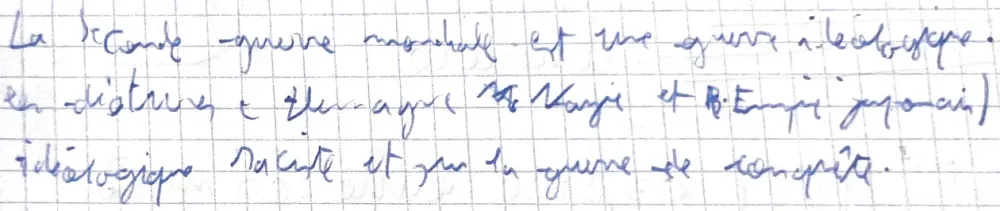 La seconde guerre mondiale est une guerre idéologique.
en dictature ( Allemagne Nazie et Empire japonais)
idéologique raciste et sur la guerre de conquête.